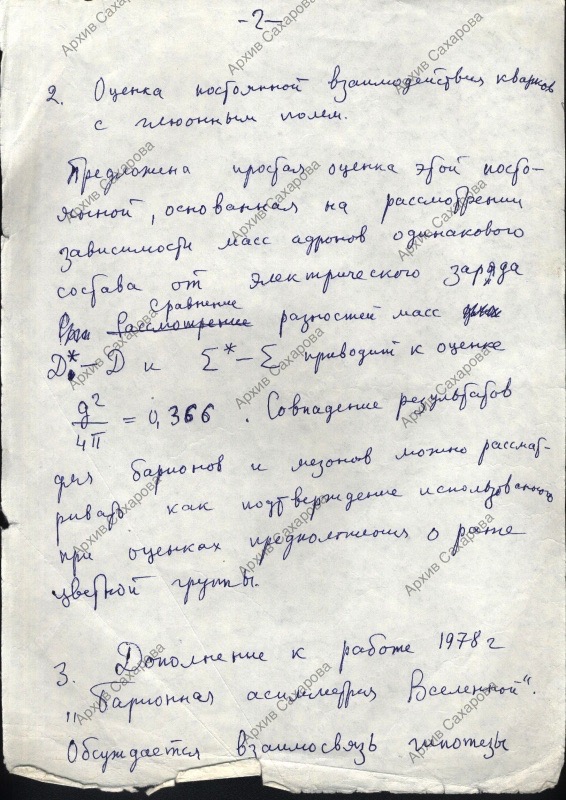 -2-
2. Оценка постоянной взаимодействия кварков
с глюонным полем.
Предложена простая оценка этой посто-
янной, основанная на рассмотрении
зависимости масс адронов одинакового
состава от электрического заряда
Сравнение
Рассмотрение разностей масс
D*-D и Σ*-Σ приводит к оценке
g²/4π = 0,366. Совпадение результатов
для барионов и мезонов можно рассмат-
ривать как подтверждение использованного
при оценках предположения о ранге
цветной группы.
3. Дополнение к работе 1978 г
"Барионная асимметрия Вселенной".
Обсуждается взаимосвязь гипотезы
Архив Сахарова